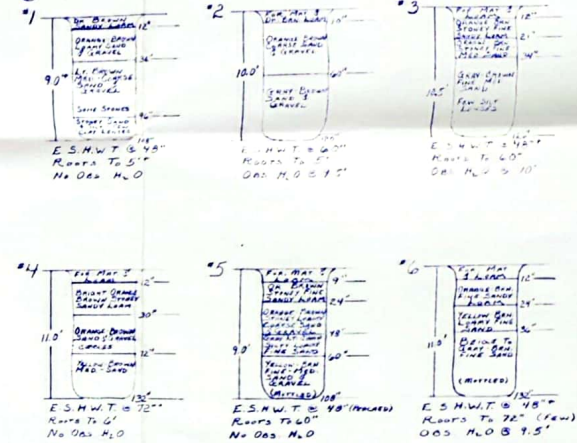 #1
DK BROWN
SANDY LOAM
12"
ORANGE-BROWN
LOAMY SAND
& GRAVEL
36"
9.0'+
LT. BROWN
MED-COARSE
SAND &
GRAVEL
SOME STONES
96"
STONEY SAND
CLAY LENSES
108"
E.S.H.W.T. @ 48"
ROOTS TO 5'+
NO OBS H2O
#2
FOR. MAT &
DK. BRN. LOAM
10"
ORANGE-BROWN
COARSE SAND
& GRAVEL
60"
10.0'
GRAY-BROWN
SAND &
GRAVEL
E.S.H.W.T. @
ROOTS TO 5'
OBS H2O @
#3
FOR. MAT &
LOAM
12"
ORANGE BRN
STONEY FINE
SANDY LOAM
21"
STONEY FINE
MED SAND
34"
10.5'
GRAY-BROWN
FINE-MED
SAND
FEW SILT
LENSES
E.S.H.W.T. @ 48"+
ROOTS TO 60"
OBS H2O @ 10'
#4
FOR MAT &
LOAM
12"
BRIGHT ORANGE
BROWN STONEY
SANDY LOAM
30"
11.0'
ORANGE BROWN
SAND & GRAVEL
COBBLES
72"
YELLOW-BROWN
MED-SAND
132"
E.S.H.W.T. @ 72"
ROOTS TO 6'
NO OBS H2O
#5
FOR. MAT &
LOAM
9"
DK BROWN
STONEY FINE
SANDY LOAM
24"
ORANGE BROWN
STONEY LOAMY
COARSE SAND
48"
FINE SAND
60"
9.0'
YELLOW-BRN
FINE-MED
SAND &
GRAVEL
(MOTTLED)
108"
E.S.H.W.T. @ 48" (PERCHED)
ROOTS TO 60"
NO OBS H2O
#6
FOR. MAT
& LOAM
12"
ORANGE BRN.
FINE SANDY
LOAM
24"
YELLOW BRN.
LOAMY FINE
SAND
36"
11.0'
BEIGE TO
GRAY BRN
FINE SAND
(MOTTLED)
132"
E.S.H.W.T. @ 48"+
ROOTS TO 72" (FEW)
OBS H2O @ 9.5'